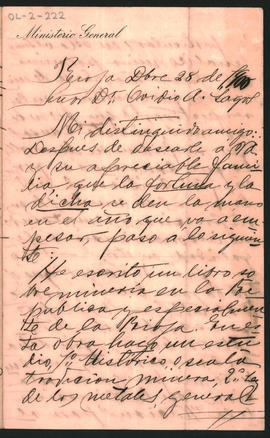 OL-2-222
Ministerio General
Rioja Dbre 28 de 900
Señor Dr. Ovidio A. Lagos
Mi distinguido amigo:
Despues de desearle a Vd
y su apreciable fami-
lia, que la fortuna y la
dicha se den la mano
en el año que va a em-
pesar, paso a lo siguien-
te.
He escrito un libro so-
bre mineria en la Re-
publica y espesialmen-
te de la Rioja. En es-
ta obra hago un estu-
dio, 1º Histórico, o sea la
tradicion minera, 2º La
de los metales, general